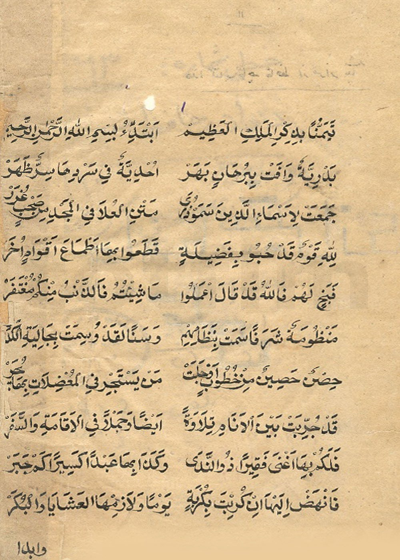 تَيَمُّنًا بِذِكْرِ الْمَلِكِ الْعَظِيمِ ابْتَدِئُ بِسْمِ اللهِ الرَّحْمٰنِ الرَّحِيمِ
بَدْرِيَّةٌ وَافَتْ بِبُرْهَانٍ بَهَرْ اُحْدِيَّةٌ فِي سَرْدِ مَا سِرٌّ ظَهَرْ
جَمَعَتْ لِاَسْمَاءِ الَّذِينَ سَمَوْا ذُرَى مَتْنِ الْعُلَا فِي الْمَجْدِ مِنْ صَحْبٍ غُرَرْ
لِلهِ قَوْمٌ قَدْ حُبُو بِفَضِيلَةٍ قَطَعُوا بِهَا اَطْمَاعَ اَقْوَامٍ اُخَرْ
فَبَخٍ لَهُمْ فَاللهُ قَدْ قَالَ اعْمَلُوا مَا شِئْتُمُ فَالذَّنْبُ مِنْكُمْ مُغْتَفَرْ
مَنْظُومَةٌ شَرَفًا سَمَتْ بِنِظَامِهِمْ وَسَنًا لَقَدْ وُسِمَتْ بِجَالِيَةِ الْكَدَرْ
حِصْنٌ حَصِينٌ مِنْ خُطُوبٍ اَوْجَلَتْ مَنْ يَسْتَجِرْ فِي الْمُعْضِلَاتِ بِهَا يُجَرْ
قَدْ جُرِّبَتْ بَيْنَ الْاَنَامِ تِلَاوَةً اَيْضًا وَحَمْلًا فِي الْاِقَامَةِ وَالسَّفَرْ
فَلَكَمْ بِهَا اَغْنَى فَقِيرًا ذُو النَّدَى وَكَذَا بِهَا عَبْدًا كَسِيرًا كَمْ جَبَرْ
فَانْهَضْ اِلَيْهَا اِنْ كُرِبْتَ بِكُرْبَةٍ يَوْمًا وَلَازِمْهَا الْعَشَايَا وَالْبُكَرْ
وابدا